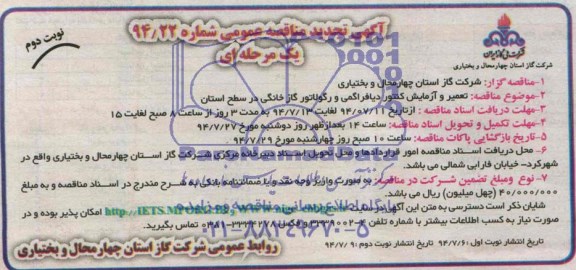 آگهی تجدید مناقصه عمومی شماره ۹۴/۲۲
یک مرحله ای
نوبت دوم
شرکت گاز استان چهارمحال و بختیاری
۱-مناقصه گزار: شرکت گاز استان چهارمحال و بختیاری
۲-موضوع مناقصه: تعمیر و آزمایش کنتور دیافراگمی و رگولاتور گاز خانگی در سطح استان
۳-مهلت دریافت اسناد مناقصه : ازتاریخ ۹۴/۰۷/۱۱ لغایت ۹۴/۷/۱۳ به مدت ۳ روز از ساعت ۸ صبح لغایت ۱۵
۴-مهلت تکمیل و تحویل اسناد مناقصه: ساعت ۱۴ بعدازظهر روز دوشنبه مورخ ۹۴/۷/۲۷
۵-تاریخ بازگشایی پاکات مناقصه: ساعت ۱۰ صبح روز چهارشنبه مورخ ۹۴/۷/۲۹
۶- محل دریافت اسناد مناقصه امور قراردادها و محل تحویل اسناد دبیرخانه مرکزی شرکت گاز استان چهارمحال و بختیاری واقع در
شهرکرد- خیابان فارابی شمالی می باشد.
۷- نوع ومبلغ تضمین شرکت در مناقصه: به صورت واریز وجه نقد و یا ضمانتنامه بانکی به شرح مندرج در اسناد مناقصه و به مبلغ
۴۰/۰۰۰/۰۰۰ (چهل میلیون) ریال می باشد.
شایان ذکر است دسترسی به متن این آگهی در http://IETS.MPORG.IR امکان پذیر بوده و در
صورت نیاز به کسب اطلاعات بیشتر با شماره تلفن تماس بگیرید.
تاریخ انتشار نوبت اول: ۹۴/۷/۶ تاریخ انتشار نوبت دوم: ۹۴/۷/۹
روابط عمومی شرکت گاز استان چهارمحال و بختیاری
پایگاه اطلاع رسانی مناقصه و مزایده
۰۲۱-۸۸۳۴۹۶۷۰-۵